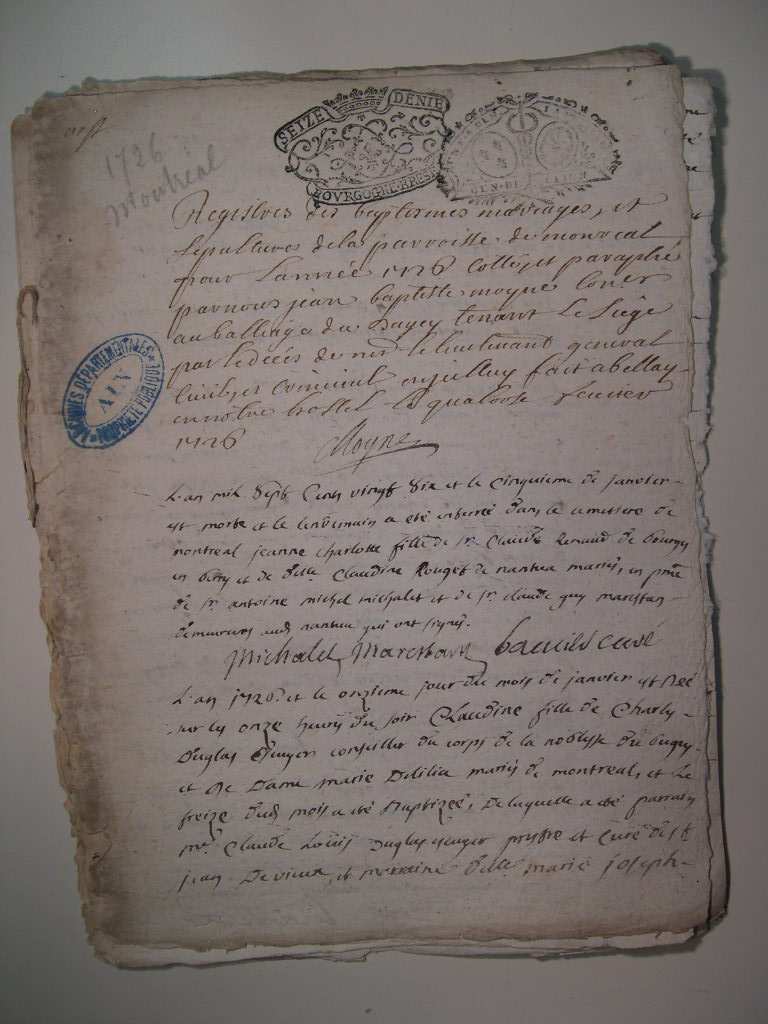 1726
Montreal
SEIZE DENIE
BOVRGOGNE BRESSE
ARCHIVES DÉPARTEMENTALES
AIN
PROPRIÉTÉ PUBLIQUE
Registres des baptesmes mariages, et
sepultures de la parroisse de monreal
pour l'année 1726 cotté et paraphé
par nous jean baptiste moyne Coner
au balliage du Bugey tenant le Siège
par le décés de mr le lieutenant general
Civil et criminel en jcelluy fait a bellay
en nôtre hostel le quatorse feuvrier
1726 Moyne
L'an mil Sept Cent vingt Six et le Cinquieme de janvier
est morte et le lendemain a été enterrée dans le cimetiere de
montreal jeanne charlotte fille de sr. Claude Renaud de bourges
en berry et de dlle. Claudine Rouget de nantua mariés, en pnce
de sr. antoine michel michalet et de sr. claude guy marchan
demeurens aud. nantua qui ont signés.
Michalet Marchant curé
L'an 1726. et le onzieme jour du mois de janvier est née
sur les onze heures du soir Claudine fille de Charles
Duglas Escuyer conseiller du corps de la noblesse du bugey
et de Dame marie Delilia mariés de montreal, et le
treize dud. mois a été Baptizée, De laquelle a été parrain
mre. Claude Loüis Duglas escuyer prestre et curé de st.
jean De vieux, et marraine dlle. marie joseph-